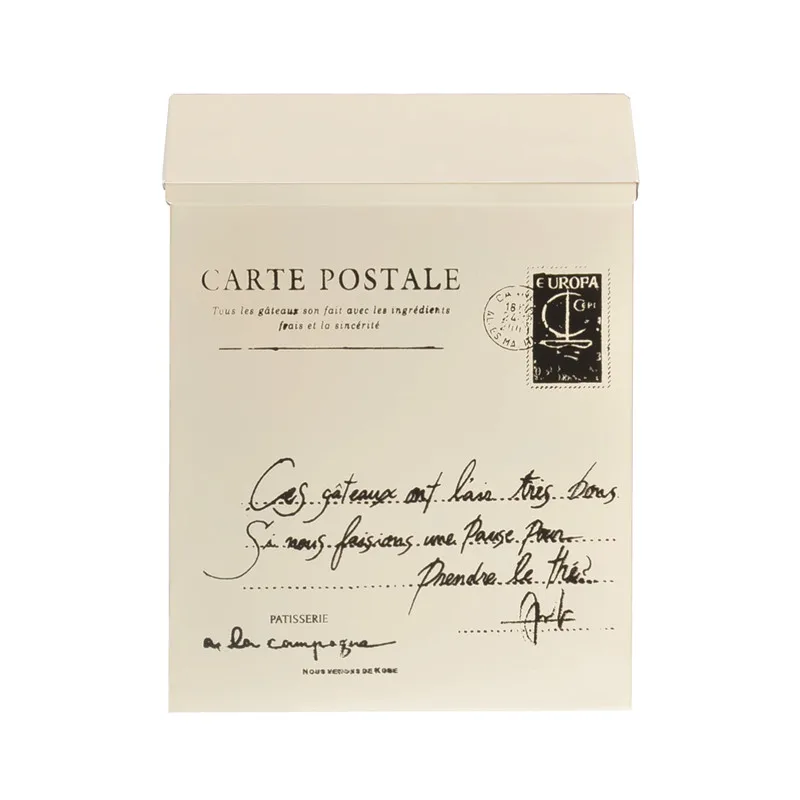 CARTE POSTALE
Tous les gâteaux son fait avec les ingrédients
frais et la sincérité
EUROPA
CEPT
Ces gâteaux ont l'air très bons
Si nous faisions une Pause Pour
Prendre le thé?
PATISSERIE
a la campagne
NOUS VENONS DE KOBE